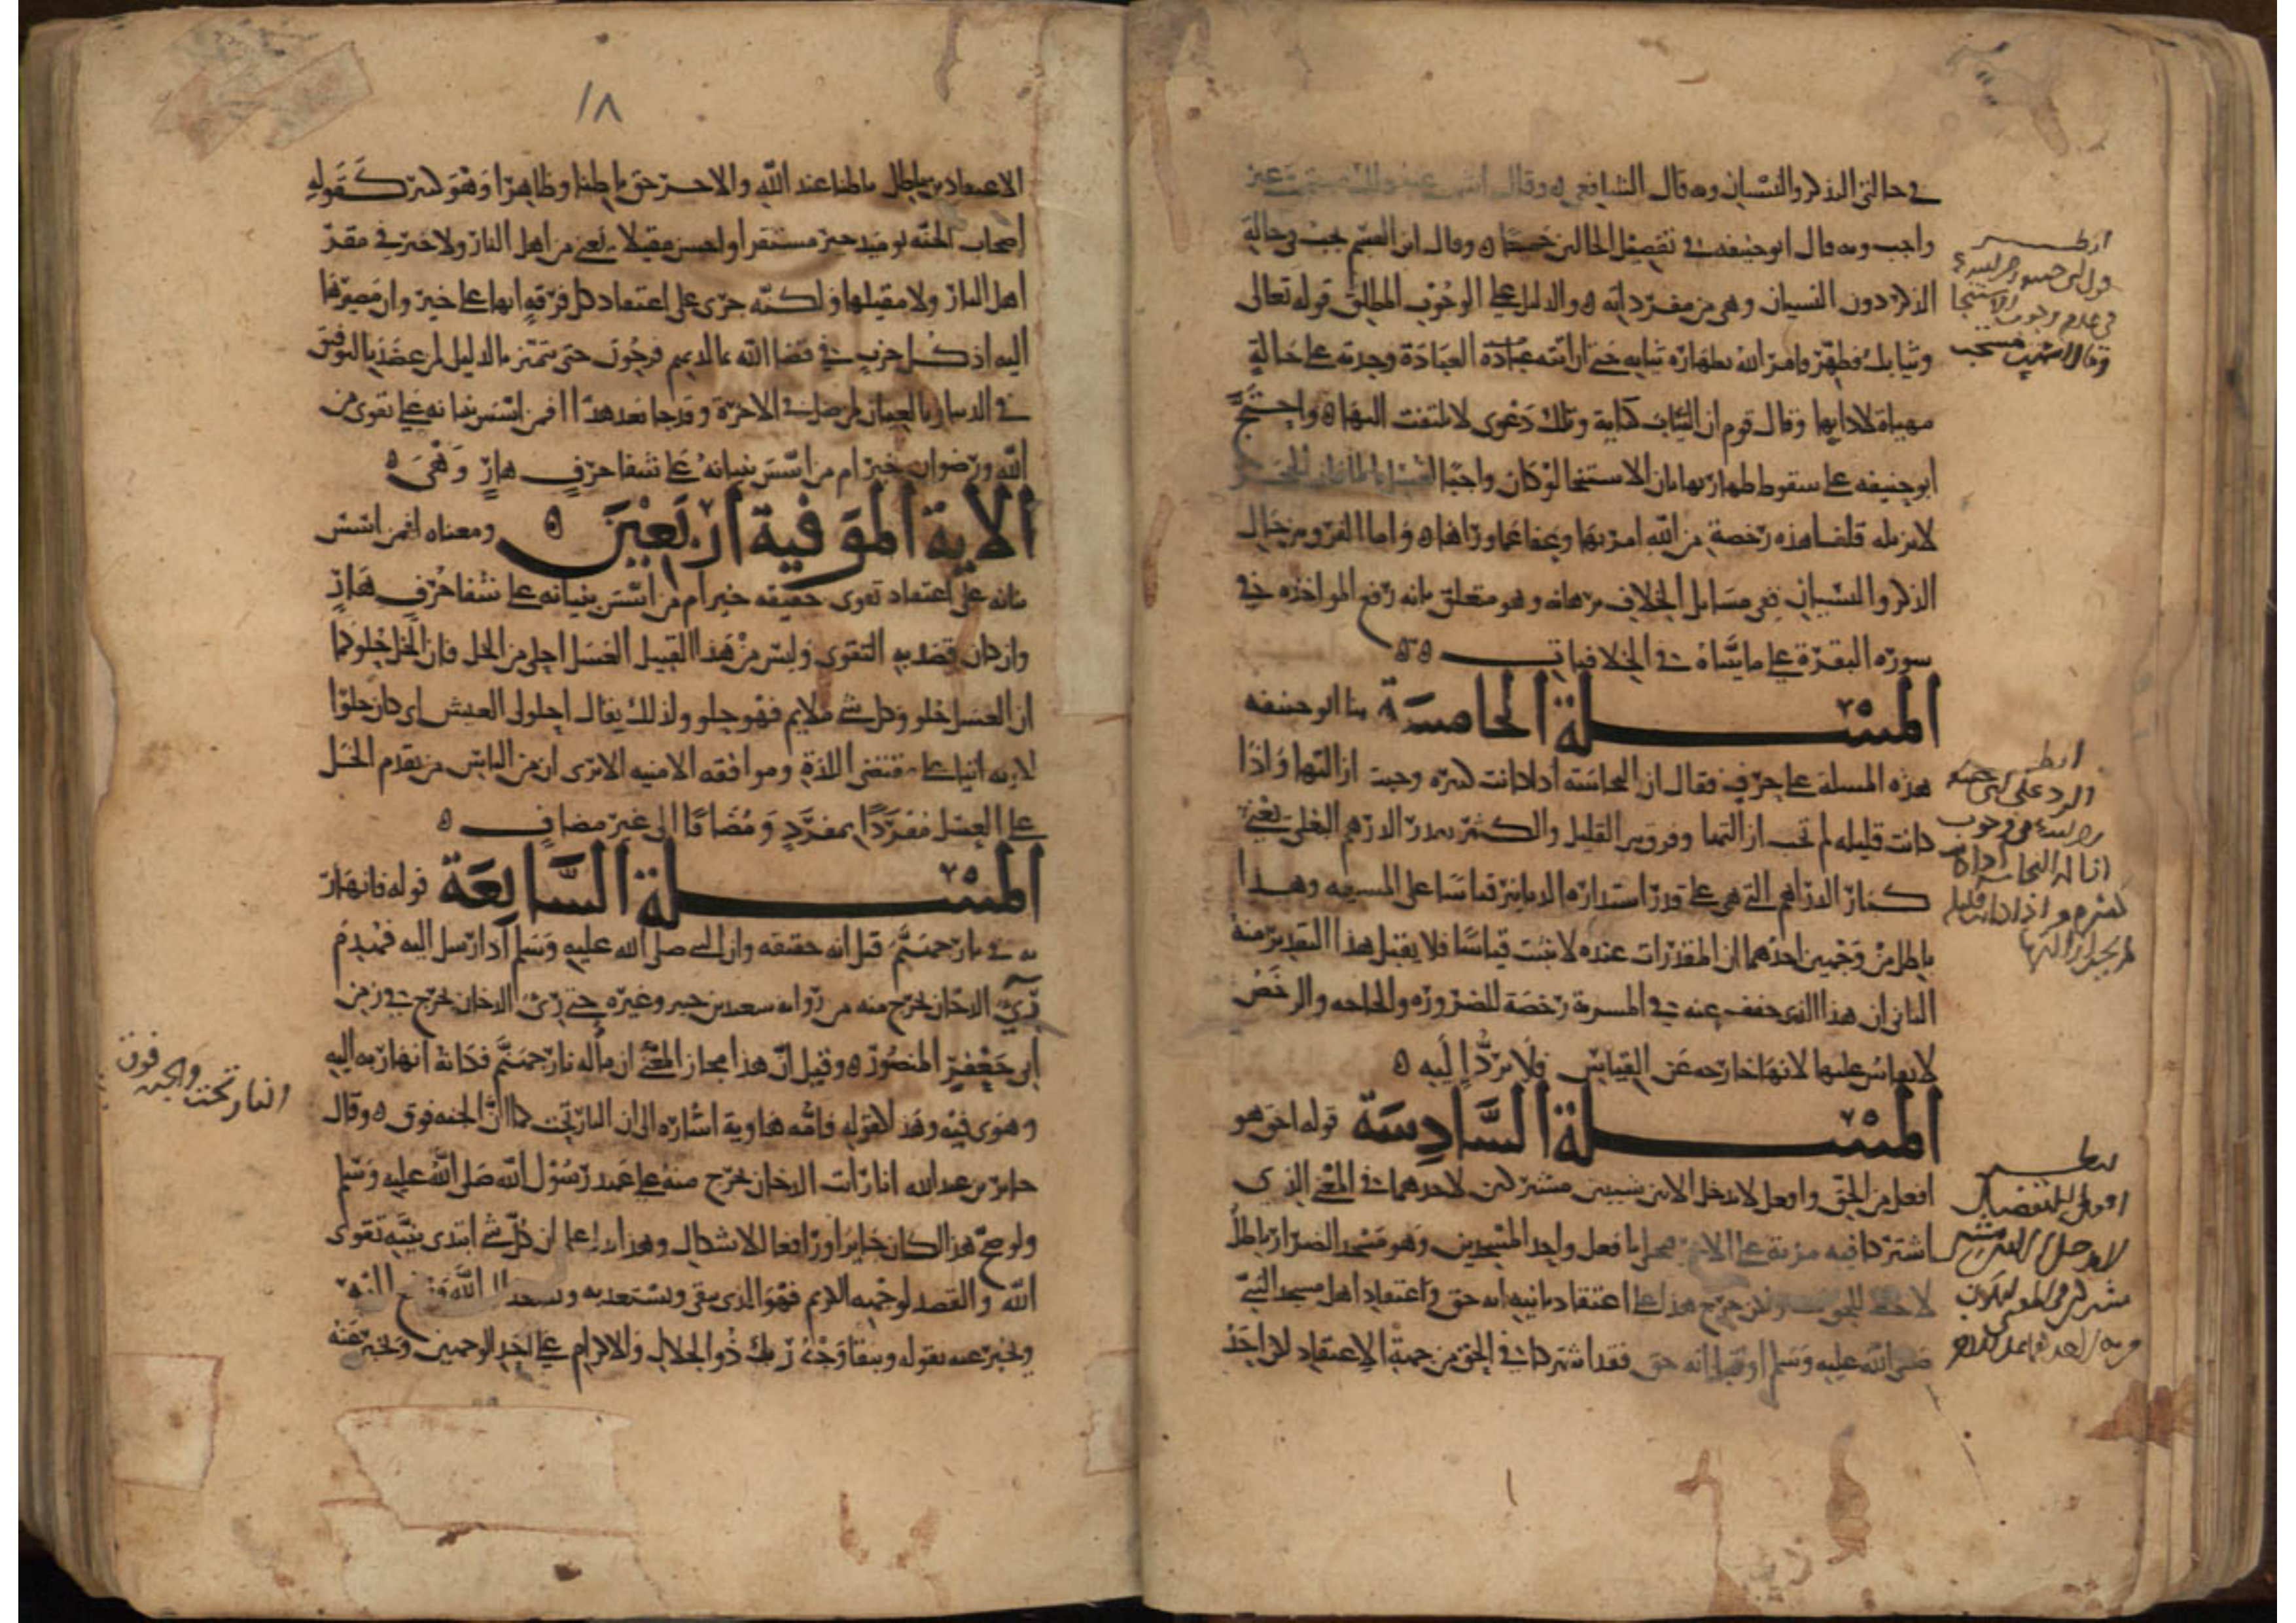 في حالتي الذكر والنسيان وبه قال الشافعي وقال
واجب وبه قال ابو حنيفة في تفصيل الحالين جميعا وقال ابن القسم يجب في حالة
الذكر دون النسيان وهي من مفرداته والدليل على الوجوب المطلق قوله تعالى
وثيابك فطهر فامر الله بطهارة ثيابه حتى ان اتته عبادة العبادة وجدته على حالة
مهياة لادايها وقال قوم ان الثياب كناية وتلك دعوى لا يلتفت اليها واحتج
ابو حنيفه على سقوط طهارتها بان الاستنجا لو كان واجبا
لا يزيله قلنا هذه رخصة من الله امر بها وعفا عما وراها واما الفرق بين حال
الذكر والنسيان ففي مسايل الخلاف برهانه وهو متعلق بانه رفع المواخذه في
سورة البقرة على ما بيناه في الخلافيات
المسلة الخامسة بنا ابو حنيفه
هذه المسلة على حرف فقال ان النجاسة اذا كانت كثيره وجبت ازالتها واذا
كانت قليله لم تجب ازالتها وفرق بين القليل والكثير بقدر الدرهم البغلي يعني
كبار الدراهم التي هي على قدر استدارة الدنانير قياسا على المسربه وهذا
باطل من وجهين احدهما ان المقدرات عنده لا تثبت قياسا فلا يقبل هذا التقدير منه
الثاني ان هذا الذي خفف عنه في المسربة رخصة للضرورة والحاجه والرخص
لا يقاس عليها لانها خارجه عن القياس فلا يرد اليه
المسلة السادسة قوله احق هو
افعل من الحق وافعل لا يدخل الا بين شيين مشتركين لاحدهما في المعنى الذي
اشتركا فيه مزية على الاخر فحلى بافعل واحد المسجدين وهو مسجد الضرار باطل
لا حظ للحق فيه ولكن خرج هذا على اعتقاد بانيه انه حق واعتقاد اهل مسجد النبي
صلى الله عليه وسلم او قبا انه حق فقد اشتركا في الحق من جهة الاعتقاد لكن احد
انظر
قول ابي حنيفة
في عدم وجوب الاستنجا
وقال اشهب مستحب
انظر
الرد على ابي حنيفة
في وجوب
ازالة النجاسة اذا كانت
كثيرة واذا كانت قليلة
لم يجب ازالتها
انظر
افعل للتفضيل
لا يدخل الا بين شيين
مشتركين في المعنى
١٨
الاعتقادين باطل باطنا عند الله والاخر حق باطنا وظاهرا وهو كثير كقوله
اصحاب الجنة يوميذ خير مستقرا واحسن مقيلا يعني من اهل النار ولا خير في مقر
اهل النار ولا مقيلها ولكنه جرى على اعتقاد كل فرقة انها على خير وان مصيرها
اليه اذ كل حزب في قضا الله بما لديهم فرحون حتى يتميز بالدليل لمن عضد بالتوفيق
في الدنيا وبالعيان لمن ضل في الاخرة وقد جا بعد هذا افمن اسس بنيانه على تقوى من
الله ورضوان خير ام من اسس بنيانه على شفا جرف هار وهي
الاية الموفية اربعين ومعناه افمن اسس
بنيانه على اعتقاد تقوى حقيقه خير ام من اسس بنيانه على شفا جرف هار
وان كان قصد به التقوى وليس من هذا القبيل العسل احلى من الخل فان الخل حلو كما
ان العسل حلو وكل شي ملايم فهو حلو ولذلك يقال احلولى العيش اي كان حلوا
لانه اتيا على مقتضى اللذة وموافقة الامنيه الا ترى ان من الناس من يقدم الخل
على العسل مفردا بمفرد ومضافا الى غير مضاف
المسلة السابعة قوله فانهار
به في نار جهنم قيل انه حقيقه وان النبي صلى الله عليه وسلم اذ ارسل اليه فهدم
رءي الدخان يخرج منه من روايه سعيد بن جبير وغيره حتى رءي الدخان يخرج في زمن
ابي جعفر المنصور وقيل ان هذا مجاز المعنى ان مأله نار جهنم فكانه انهار به اليه
وهوى فيه وهذا كقوله فامه هاوية اشارة الى ان النار تحت كما ان الجنه فوق وقال
جابر بن عبد الله انا رات الدخان يخرج منه على عهد رسول الله صلى الله عليه وسلم
ولو صح هذا لكان جابرا رافعا للاشكال وهذا يدل على ان كل شي ابتدي بنية تقوى
الله والقصد لوجهه الكريم فهو الذي يبقى ويستعد به ويصعد الى الله ويرفع اليه
ويخبر عنه بقوله ويبقا وجه ربك ذو الجلال والاكرام على احد الوجهين ويخبر عنه
النار تحت والجنة فوق